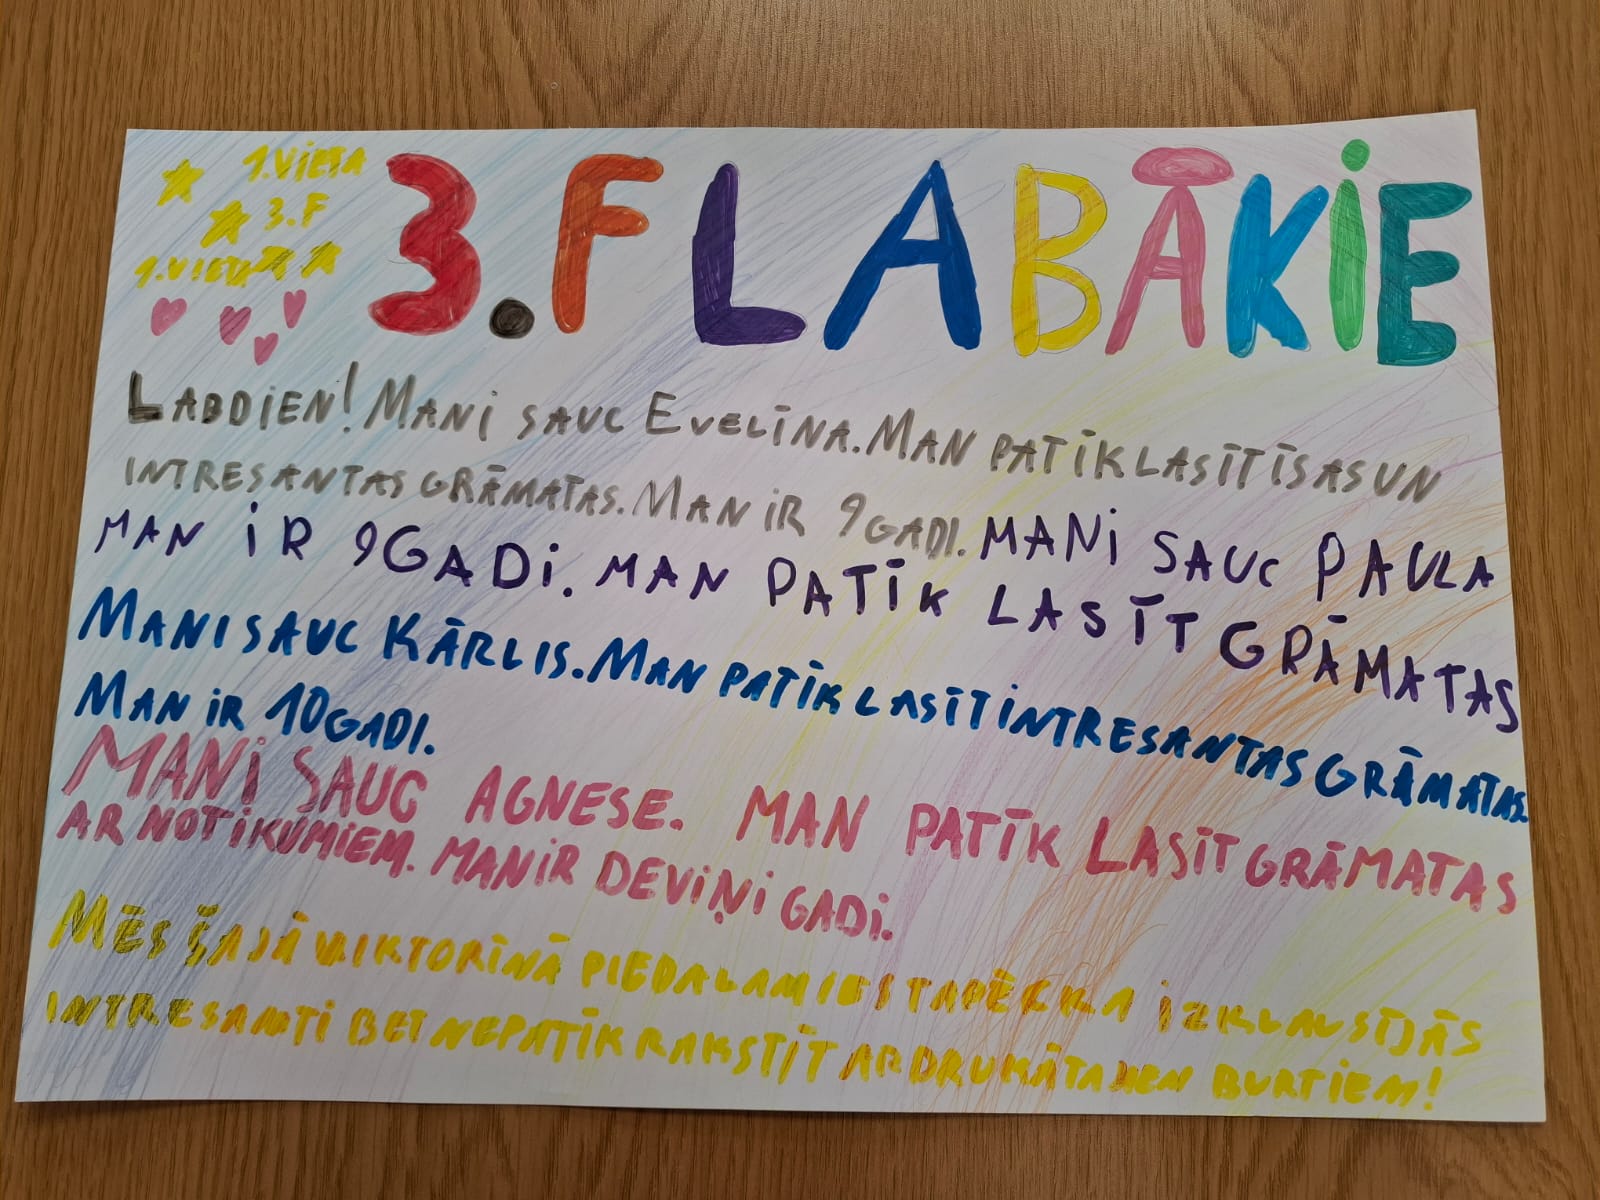 1.VIETA
3.F
1.VIETA
3.F LABĀKIE
LABDIEN! MANI SAUC EVELĪNA. MAN PATĪK LASĪT ĪSAS UN
INTRESANTAS GRĀMATAS. MAN IR 9 GADI. MANI SAUC PAULA
MAN IR 9 GADI. MAN PATĪK LASĪT GRĀMATAS
MANI SAUC KĀRLIS. MAN PATĪK LASĪT INTRESANTAS GRĀMATAS.
MAN IR 10 GADI.
MANI SAUC AGNESE. MAN PATĪK LASĪT GRĀMATAS
AR NOTIKUMIEM. MAN IR DEVIŅI GADI.
MĒS ŠAJĀ VIKTORĪNĀ PIEDALAMIES TAPĒC KA IZKLAUSĪJĀS
INTRESANTI BET NEPATĪK RAKSTĪT AR DRUKĀTAJIEM BURTIEM!